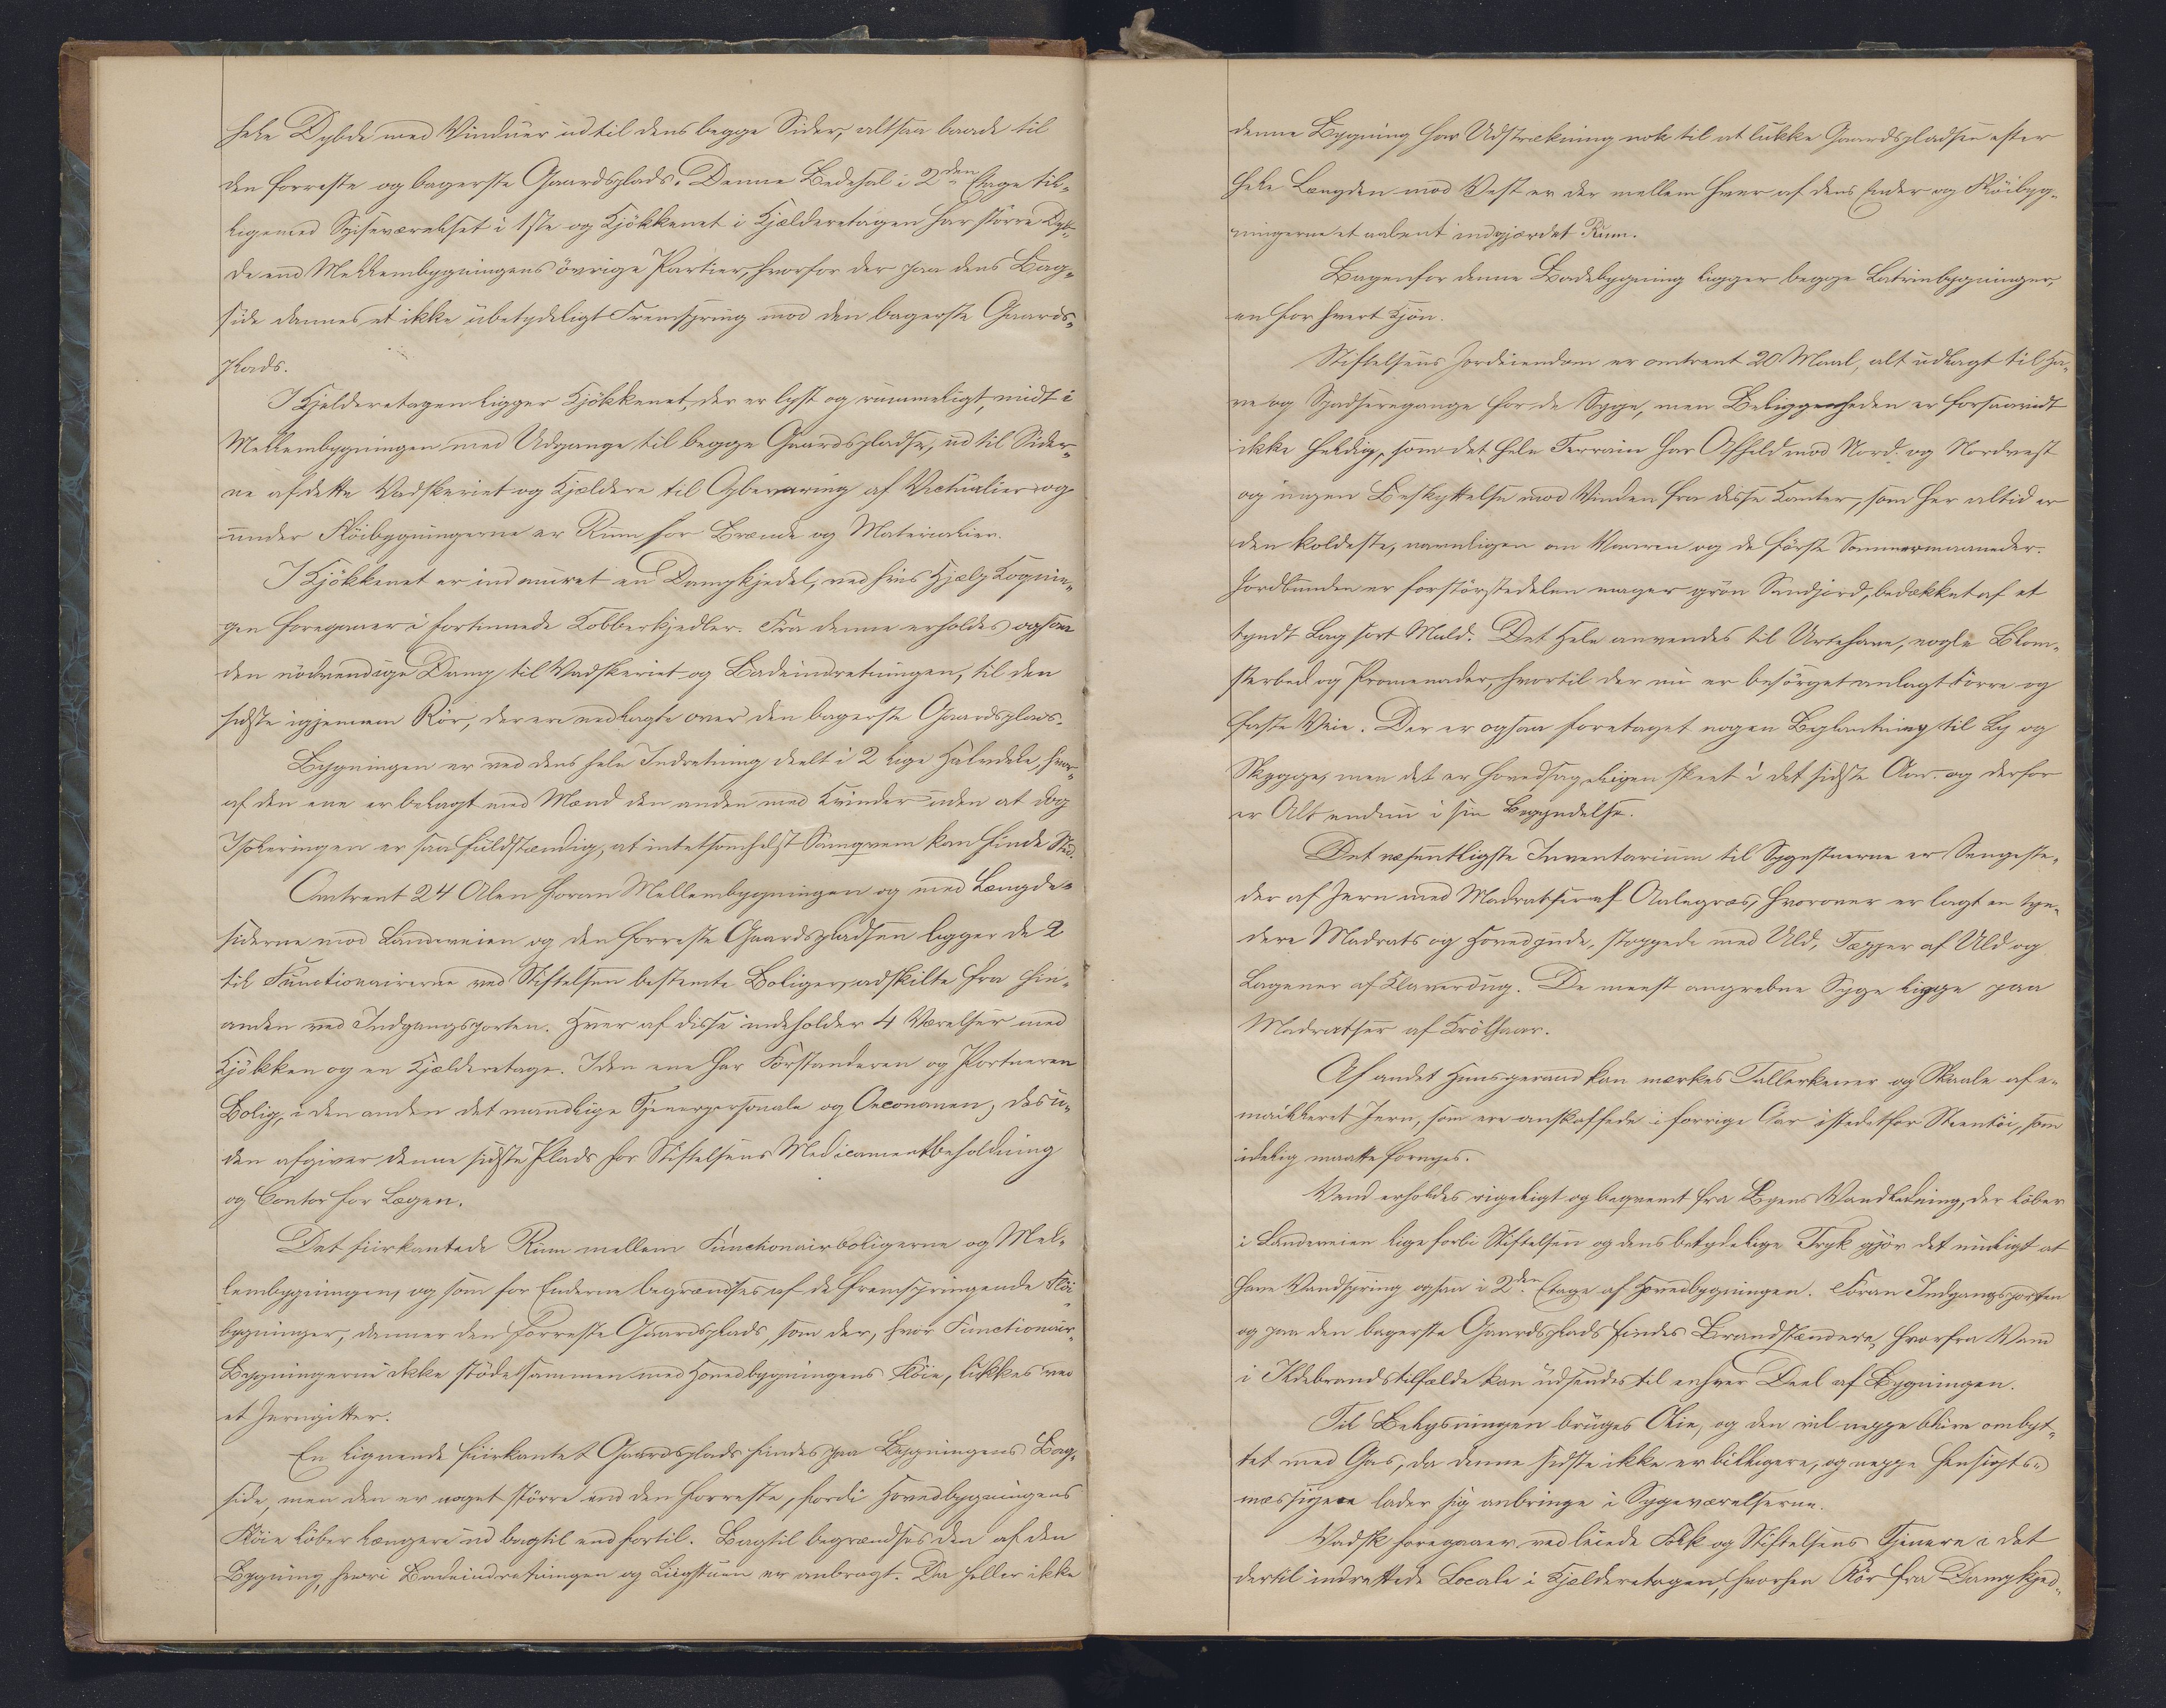 hele Dybde med Vinduer ud til dens begge Sider, altsaa baade til
den forreste og bagerste Gaardsplads. Denne Bedesal i 2den Etage til-
ligemed Spiseværelset i 1ste og Kjökkenet i Kjælderetagen har större Dyb-
de end Mellembygningens övrige Partier, hvorfor der paa dens Bag-
side dannes et ikke übetydeligt Fremspring mod den bagerste Gaards-
plads.
I Kjelderetagen ligger Kjökkenet, der er lyst og rummeligt, midt i
Mellembygningen med Udgange til begge Gaardspladse, ud til Sider-
ne af dette Vadskeriet og Kjældere til Opbevaring af Victualier og
under Flöibygningerne er Rum for Brænde og Materialier.
I Kjökkenet er indmuret en Dampkjedel, ved hvis Hjælp Kognin-
gen foregaaer i fortinnede Kobberkjedler. Fra denne erholdes ogsaa
den nödvendige Damp til Vadskeriet og Badeindretningen, til den
sidste igjennem Rör, der ere nedlagte over den bagerste Gaardsplads.
Bygningen er ved dens hele Indretning deelt i 2 lige Halvdele, hvor-
af den ene er belagt med Mænd den anden med Kvinder uden at dog
Isoleringen er saa fuldstændig, at intetsomhelst Samqvem kan finde Sted.
Omtrent 24 Alen foran Mellembygningen og med Længde-
siderne mod Landeveien og den forreste Gaardspladsen ligger de 2
til Functionairerne ved Stiftelsen bestemte Boliger, adskilte fra hin-
anden ved Indgangsporten. Hver af disse indeholder 4 Værelser med
Kjökken og en Kjælderetage. I den ene har Forstanderen og Portneren
Bolig, i den anden det mandlige Tjenerpersonale og Oeconomen, desu-
den afgiver denne sidste Plads for Stiftelsens Medicamentbeholdning
og Contor for Lægen.
Det fiirkantede Rum mellem Functionairboligerne og Mel-
lembygningen, og som for Enderne begrændses af de fremspringende Flöi-
bygninger, danner den forreste Gaardsplads, som der, hvor Functionair-
Bygningerne ikke stöde sammen med Hovedbygningens Flöie, lukkes ved
et Jerngitter.
En lignende fiirkantet Gaardsplads findes paa Bygningens Bag-
side, men den er noget större end den forreste, fordi Hovedbygningens
Flöie löber længere ud bagtil end fortil. Bagtil begrændses den af den
Bygning, hvori Badeindretningen og Liigstuen er anbragt. Da heller ikke
denne Bygning har Udstrækning nok til at lukke Gaardspladsen efter
hele Længden mod Vest er der mellem hver af dens Ender og Flöibyg-
ningerne et aabent indgjærdet Rum.
Bagenfor denne Badebygning ligger begge Latrinbygninger,
en for hvert Kjön.
Stiftelsens Jordeiendom er omtrent 20 Maal, alt udlagt til Ha-
ve og Spadseregange for de Syge, men Beliggenheden er forsaavidt
ikke heldig, som det hele Terrain har Afheld mod Nord og Nordvest
og ingen Beskyttelse mod Vinden fra disse Kanter, som her altid er
den koldeste, navnligen om Vaaren og de förste Sommermaaneder.
Jordbunden er forstörstedelen mager grön Sandjord, bedækket af et
tyndt Lag sort Muld. Det Hele anvendes til Urtehave, nogle Blom-
sterbed og Promenader, hvortil der nu er besörget anlagt törre og
faste Veie. Der er ogsaa foretaget nogen Beplantning til Ly og
Skygge, men det er hovedsageligen skeet i det sidste Aar og derfor
er Alt endnu i sin Begyndelse.
Det væsentligste Inventarium til Sygestuerne er Sengeste-
der af Jern med Madratser af Aalegræs, hvorover er lagt en tyn-
dere Madrats og Hovedpude, stoppede med Uld, Tæpper af Uld og
Lagener af Klaverdug. De meest angrebne Syge ligge paa
Madratser af Krölhaar.
Af andet Huusgeraad kan mærkes Tallerkener og Skaale af e-
mailleret Jern, som ere anskaffede i forrige Aar istedetfor Steentöi, som
idelig maatte fornyes.
Vand erholdes rigeligt og beqvemt fra Byens Vandledning, der löber
i Landeveien lige forbi Stiftelsen og dens betydelige Tryk gjör det muligt at
have Vandspring ogsaa i 2den Etage af Hovedbygningen. Foran Indgangsporten
og paa den bagerste Gaardsplads findes Brandstændere, hvorfra Vand
i Ildebrandstilfælde kan udsendes til enhver Deel af Bygningen.
Til Belysningen bruges Olie, og den vil neppe blive ombyt-
tet med Gas, da denne sidste ikke er billigere, og neppe hensigts-
mæssigere lader sig anbringe i Sygeværelserne.
Vadsk foregaaer ved leiede Folk og Stiftelsens Tjenere i det
dertil indrettede Locale i Kjælderetagen, hvorhen Rör fra Dampkjed-